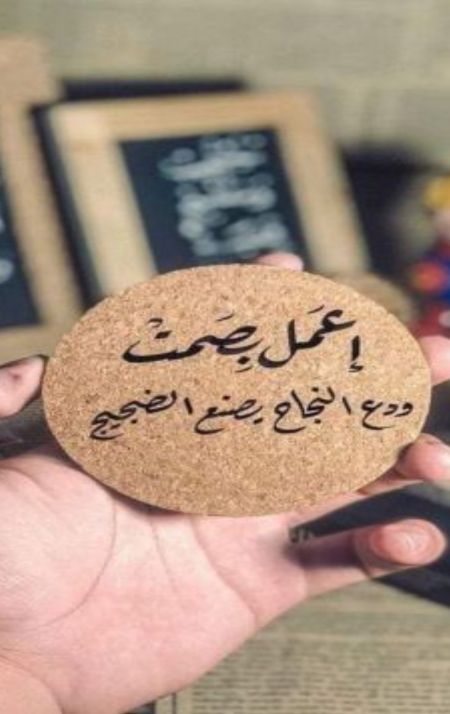 إعمل بصمت
ودع النجاح يصنع الضجيج